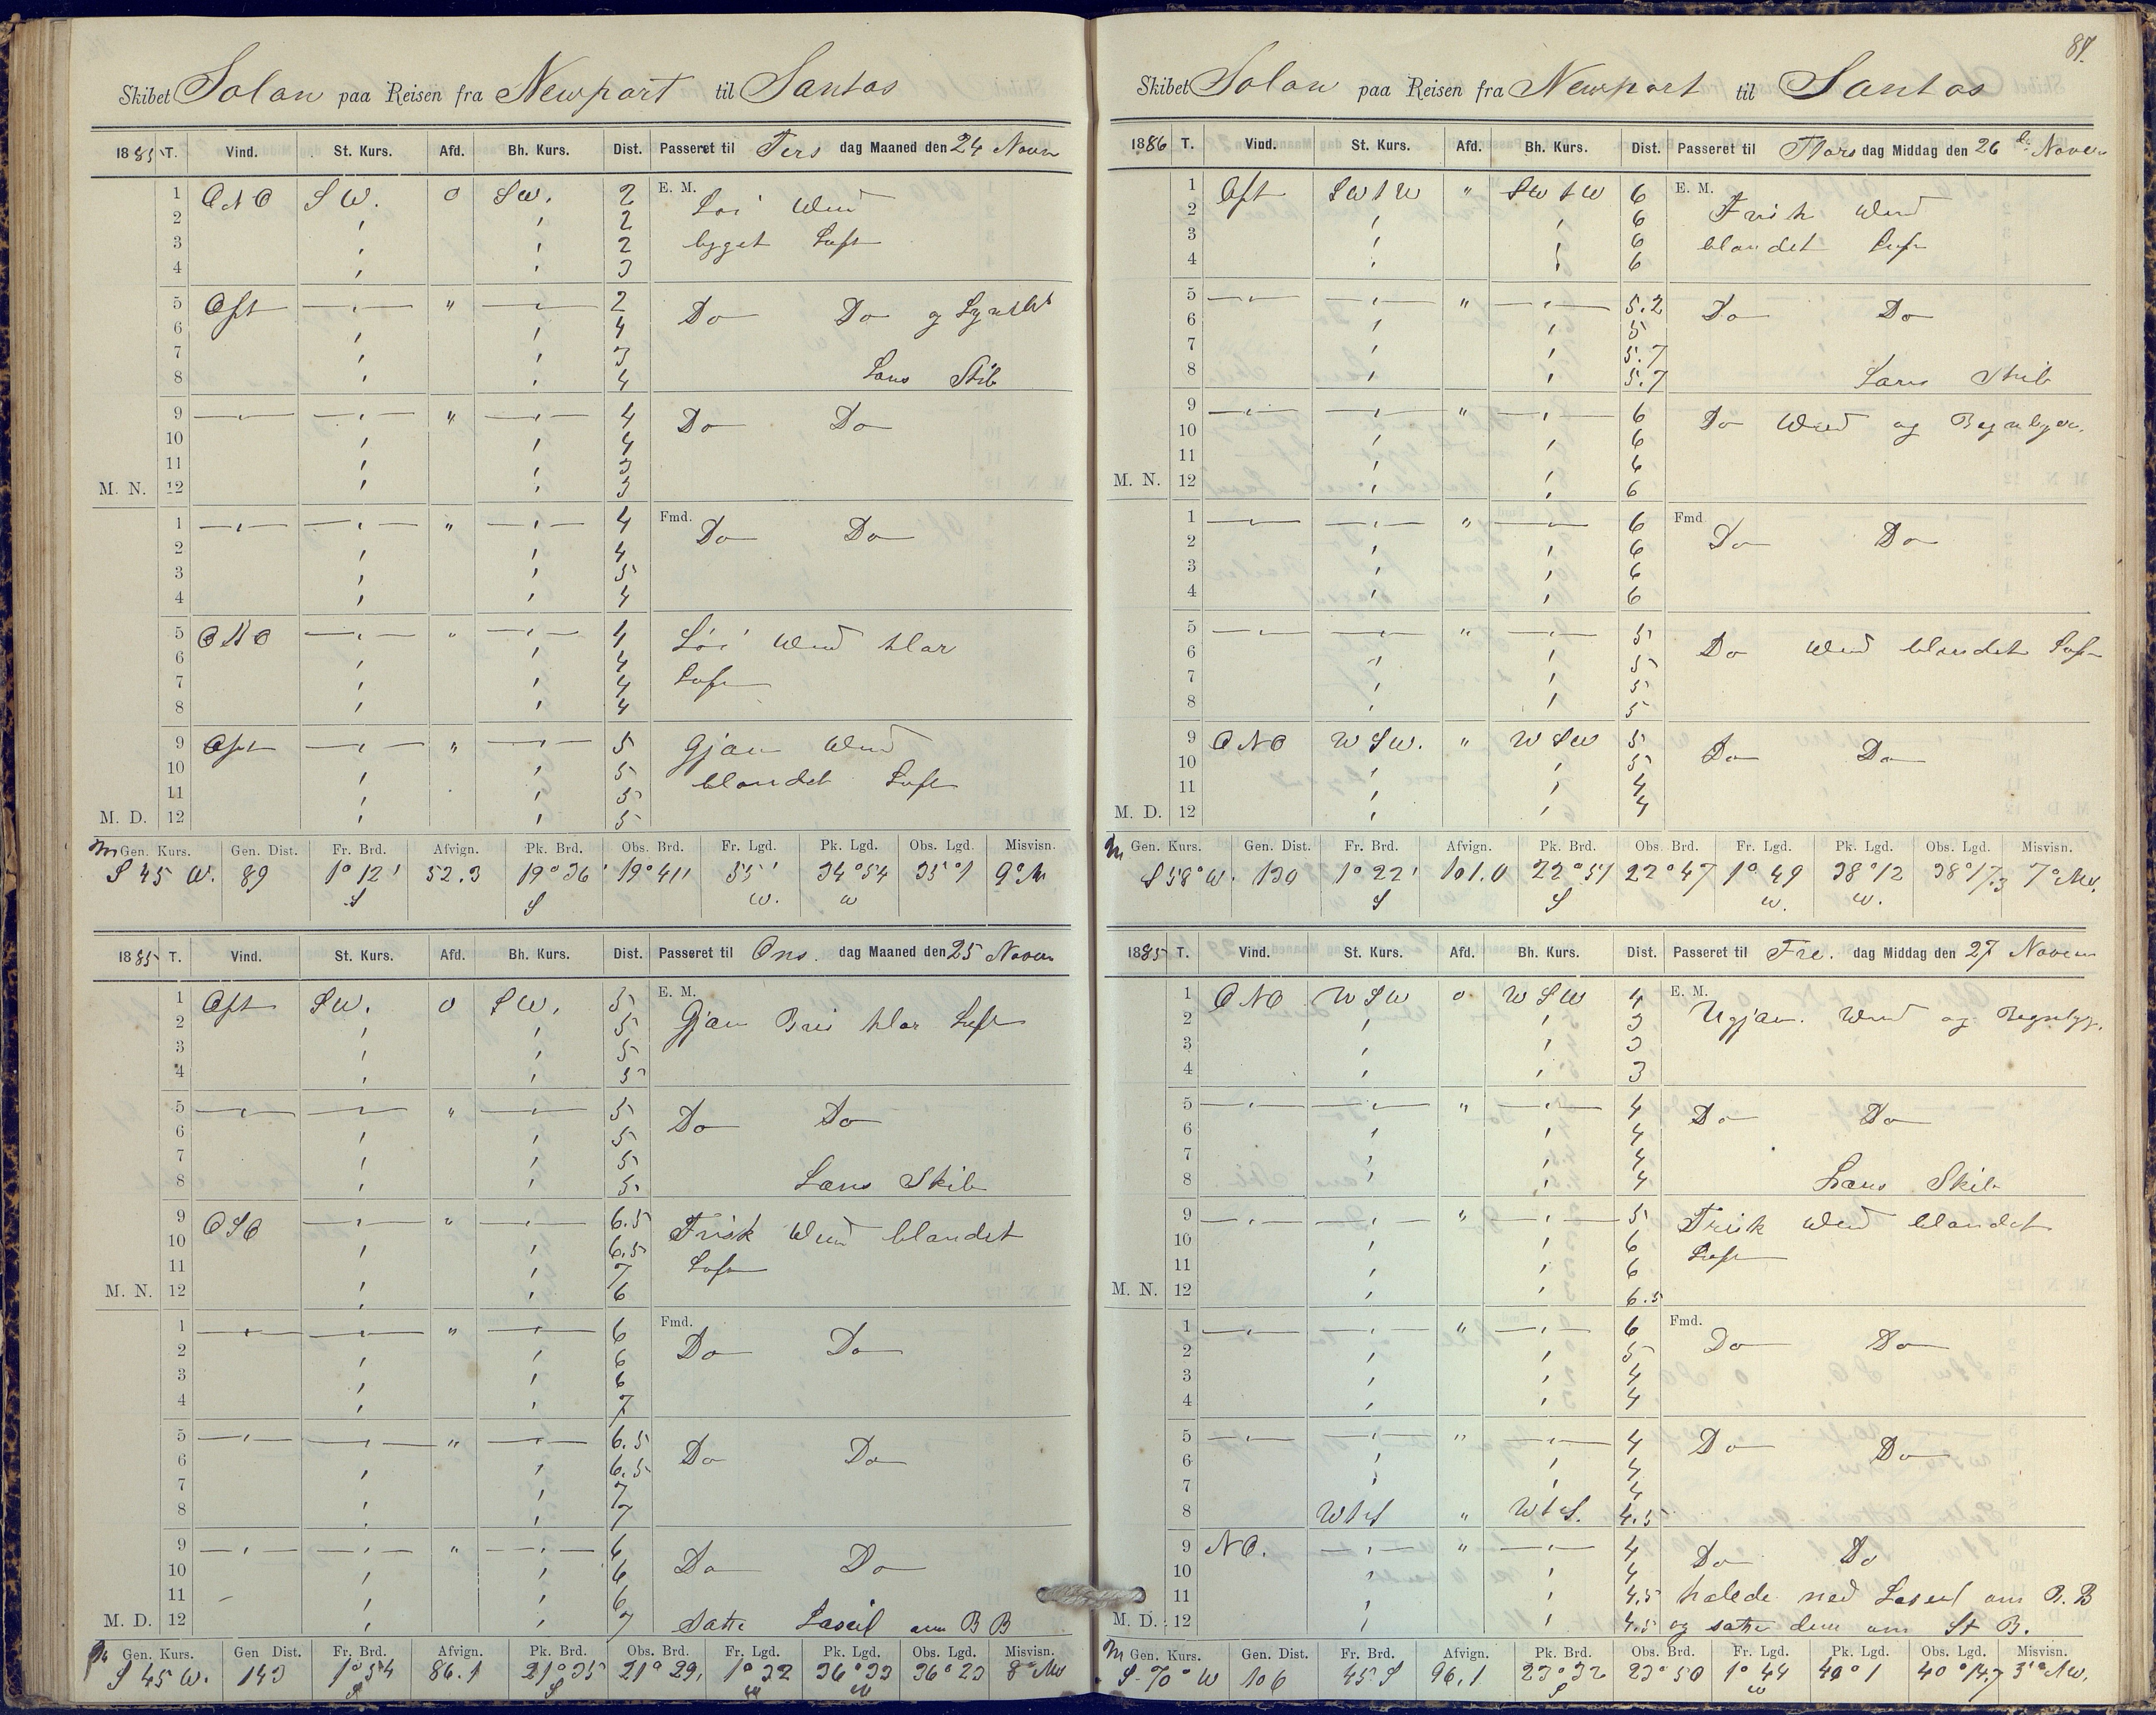 Skibet Solon paa Reisen fra Newport til Santos
1885 T. Vind. St. Kurs. Afd. Bh. Kurs. Dist. Passeret til Tersdag Maaned den 24 Novem
1 ONO SW. 0 SW. 2 E. M. Löi Wind
2 2
3 2 byget Luft
4 3
5 Ost " 2 Do Do og Lynild
6 4
7 3
8 4 Læns Skib
9 " 4 Do Do
10 4
11 3
M. N. 12 3
1 " 4 Fmd. Do Do
2 4
3 5
4 4
5 ONO " 4 Löi Wind klar
6 4
7 4 Luft
8 4
9 Ost " 5 Gjæv Wind
10 5 blandet Luft
11 5
M. D. 12 5
M Gen. Kurs. Gen. Dist. Fr. Brd. Afvign. Pk. Brd. Obs. Brd. Fr. Lgd. Pk. Lgd. Obs. Lgd. Misvisn.
S 45 W. 89 1° 12' S 52.3 19° 36' S 19° 41 55' W. 34° 54 W 35° 1 9° N
1885 T. Vind. St. Kurs. Afd. Bh. Kurs. Dist. Passeret til Ons. dag Maaned den 25 Novem
1 Ost SW. 0 SW. 5 E. M.
2 5 Gjæv Bris klar Luft
3 5
4 5
5 " 5 Do Do
6 5
7 5
8 5 Læns Skib
9 OSO " 6.5 Frisk Wind blandet
10 6.5
11 7 Luft
M. N. 12 6
1 " 6 Fmd. Do Do
2 6
3 6
4 7
5 " 6.5 Do Do
6 6.5
7 7
8 7
9 " 6 Do Do
10 6
11 6
M. D. 12 7 Satte Læseil om B B
M Gen. Kurs. Gen Dist. Fr. Brd. Afvign. Pk. Brd. Obs. Brd. Fr. Lgd. Pk. Lgd. Obs. Lgd. Misvisn.
S 45 W. 143 1° 54 S 86.1 21° 35 S 21° 29, 1° 32 W 36° 33 W 36° 23 8° NW
87.
Skibet Solon paa Reisen fra Newport til Santos
1886 T. Vind. St. Kurs. Afd. Bh. Kurs. Dist. Passeret til Thorsdag Middag den 26 de Novem
1 Ost SWtW " SWtW 6 E. M.
2 6 Frisk Wind
3 6 blandet Luft
4 6
5 " 5.2 Do Do
6 5
7 5.7
8 5.7 Læns Skib
9 " 6 Do Wind og Regnbyer.
10 6
11 6
M. N. 12 6
1 " 6 Fmd
2 6 Do Do
3 6
4 6
5 " 5 Do Wind blandet Luft
6 5
7 5
8 5
9 ONO WSW. " WSW 5 Do Do
10 5
11 4
M. D. 12 4
M Gen. Kurs. Gen. Dist. Fr. Brd. Afvign. Pk. Brd. Obs. Brd. Fr. Lgd. Pk. Lgd. Obs. Lgd. Misvisn.
S 58° W. 130 1° 22' S 101.0 22° 51 S 22° 47 1° 49 W. 38° 12 W. 38° 17.3 7° NW.
1885 T. Vind. St. Kurs. Afd. Bh. Kurs. Dist. Passeret til Fre. dag Middag den 27 Novem
1 ONO WSW 0 WSW 4 E. M.
2 3 Ugjæv. Wind og Regnbyg.
3 3
4 3
5 " 4 Do Do
6 4
7 4
8 4 Læns Skib
9 " 5 Frisk Wind blandet
10 6 Luft
11 6
M. N. 12 6.5
1 " 6 Fmd.
2 5 Do Do
3 4
4 4
5 " 4 Do Do
6 4
7 4
8 WtS " WtS. 4.5
9 NO. " 4 Do Do
10 4
11 4.5 halede ned Læseil om B.B
M. D. 12 4.5 og satte dem om St B.
M Gen. Kurs. Gen. Dist. Fr. Brd. Afvign. Pk. Brd. Obs. Brd. Fr. Lgd. Pk. Lgd. Obs. Lgd. Misvisn.
S. 70° W 106 45. S 96.1 23° 32 S 23° 50 1° 44 W 40° 1 40° 14.7 3° NW.